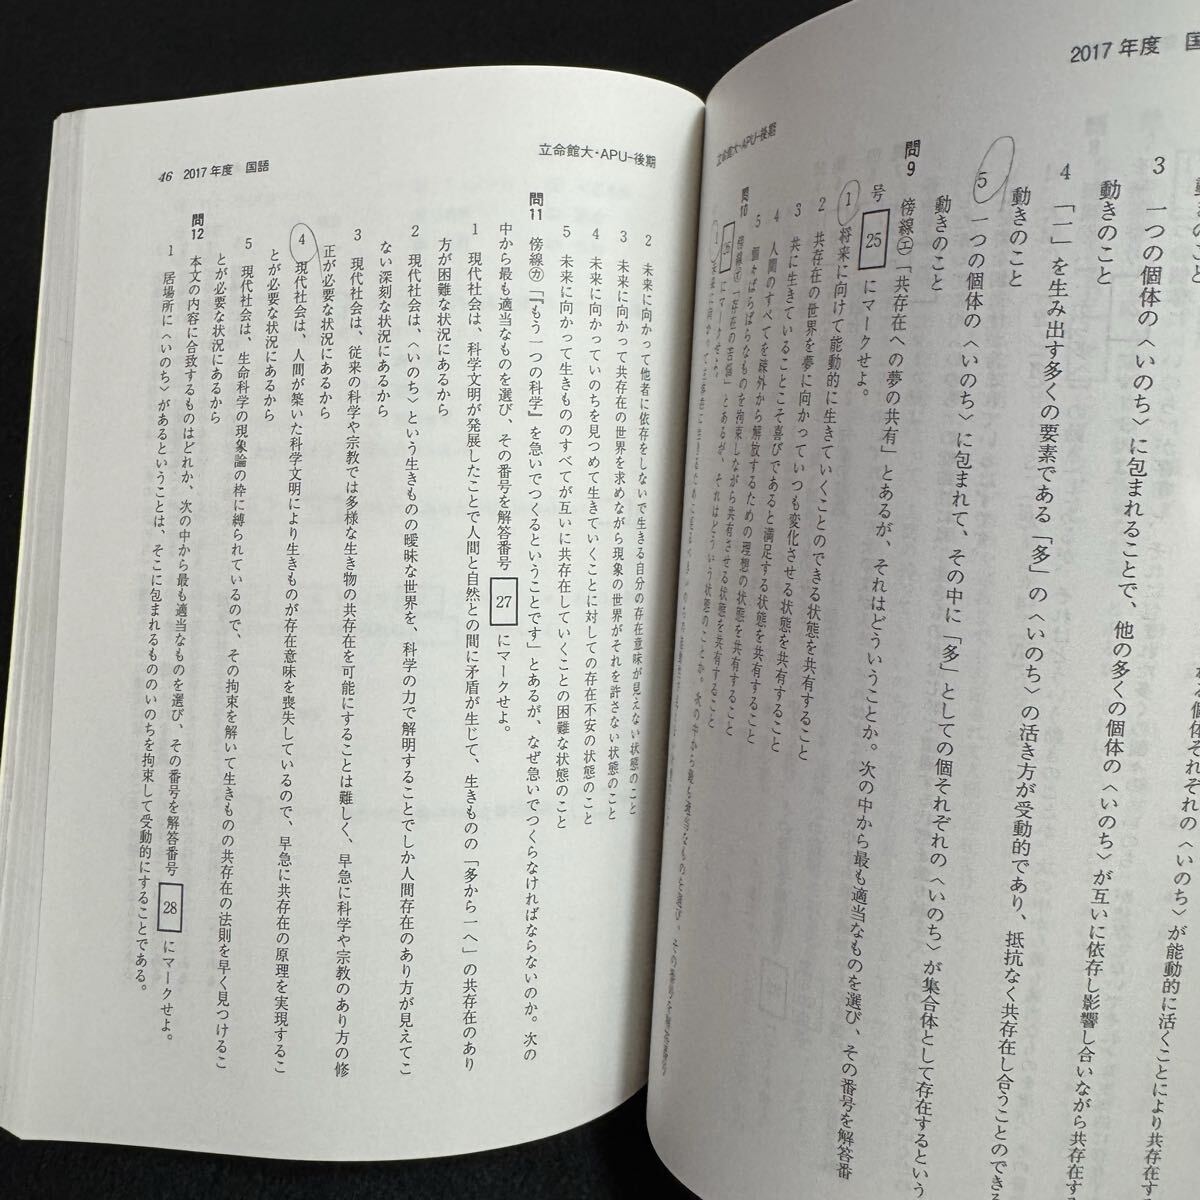 2017年度 国
動きのこと
3 一つの個体の〈いのち〉に包まれることで、他の多くの個体の〈いのち〉が互いに依存し影響し合いながら共存在す
動きのこと
4 「一」を生み出す多くの要素である「多」の〈いのち〉の活き方が受動的であり、抵抗なく共存在し合うことのでき
動きのこと
5 一つの個体の〈いのち〉に包まれて、その中に「多」としての個それぞれの〈いのち〉が集合体として存在するという
動きのこと
問9 傍線㋓「共存在への夢の共有」とあるが、それはどういうことか。次の中から最も適当なものを選び、その番号を解答番
号 25 にマークせよ。
1 将来に向けて能動的に生きていくことのできる状態を共有すること
2 共存在の世界を夢に向かっていつも変化させる状態を共有すること
3 共に生きていることこそ喜びであると満足する状態を共有すること
4 人間のすべてを疎外から解放するための理想の状態を共有すること
5 個々ばらばらなものを拘束しながら共有させる状態を共有すること
問10 傍線㋔「存在の苦悩」とあるが、それはどういう状態のことか。次の中から最も適当なものを選び、その番号を解答番号
にマークせよ。
立命館大・APU-後期
立命館大・APU-後期
46 2017年度 国語
2 未来に向かって他者に依存をしないで生きる自分の存在意味が見えない状態のこと
3 未来に向かって共存在の世界を求めながら現象の世界がそれを許さない状態のこと
4 未来に向かっていのちを見つめて生きていくことに対しての存在不安の状態のこと
5 未来に向かって生きもののすべてが互いに共存在していくことの困難な状態のこと
問11 傍線㋕「『もう一つの科学』を急いでつくるということです」とあるが、なぜ急いでつくらなければならないのか。次の
中から最も適当なものを選び、その番号を解答番号 27 にマークせよ。
1 現代社会は、科学文明が発展したことで人間と自然との間に矛盾が生じて、生きものの「多から一へ」の共存在のあり
方が困難な状況にあるから
2 現代社会は、〈いのち〉という生きものの曖昧な世界を、科学の力で解明することでしか人間存在のあり方が見えてこ
ない深刻な状況にあるから
3 現代社会は、従来の科学や宗教では多様な生き物の共存在を可能にすることは難しく、早急に科学や宗教のあり方の修
正が必要な状況にあるから
4 現代社会は、人間が築いた科学文明により生きものが存在意味を喪失しているので、早急に共存在の原理を実現するこ
とが必要な状況にあるから
5 現代社会は、生命科学の現象論の枠に縛られているので、その拘束を解いて生きものの共存在の法則を早く見つけるこ
とが必要な状況にあるから
問12 本文の内容に合致するものはどれか、次の中から最も適当なものを選び、その番号を解答番号 28 にマークせよ。
1 居場所に〈いのち〉があるということは、そこに包まれるもののいのちを拘束して受動的にすることである。